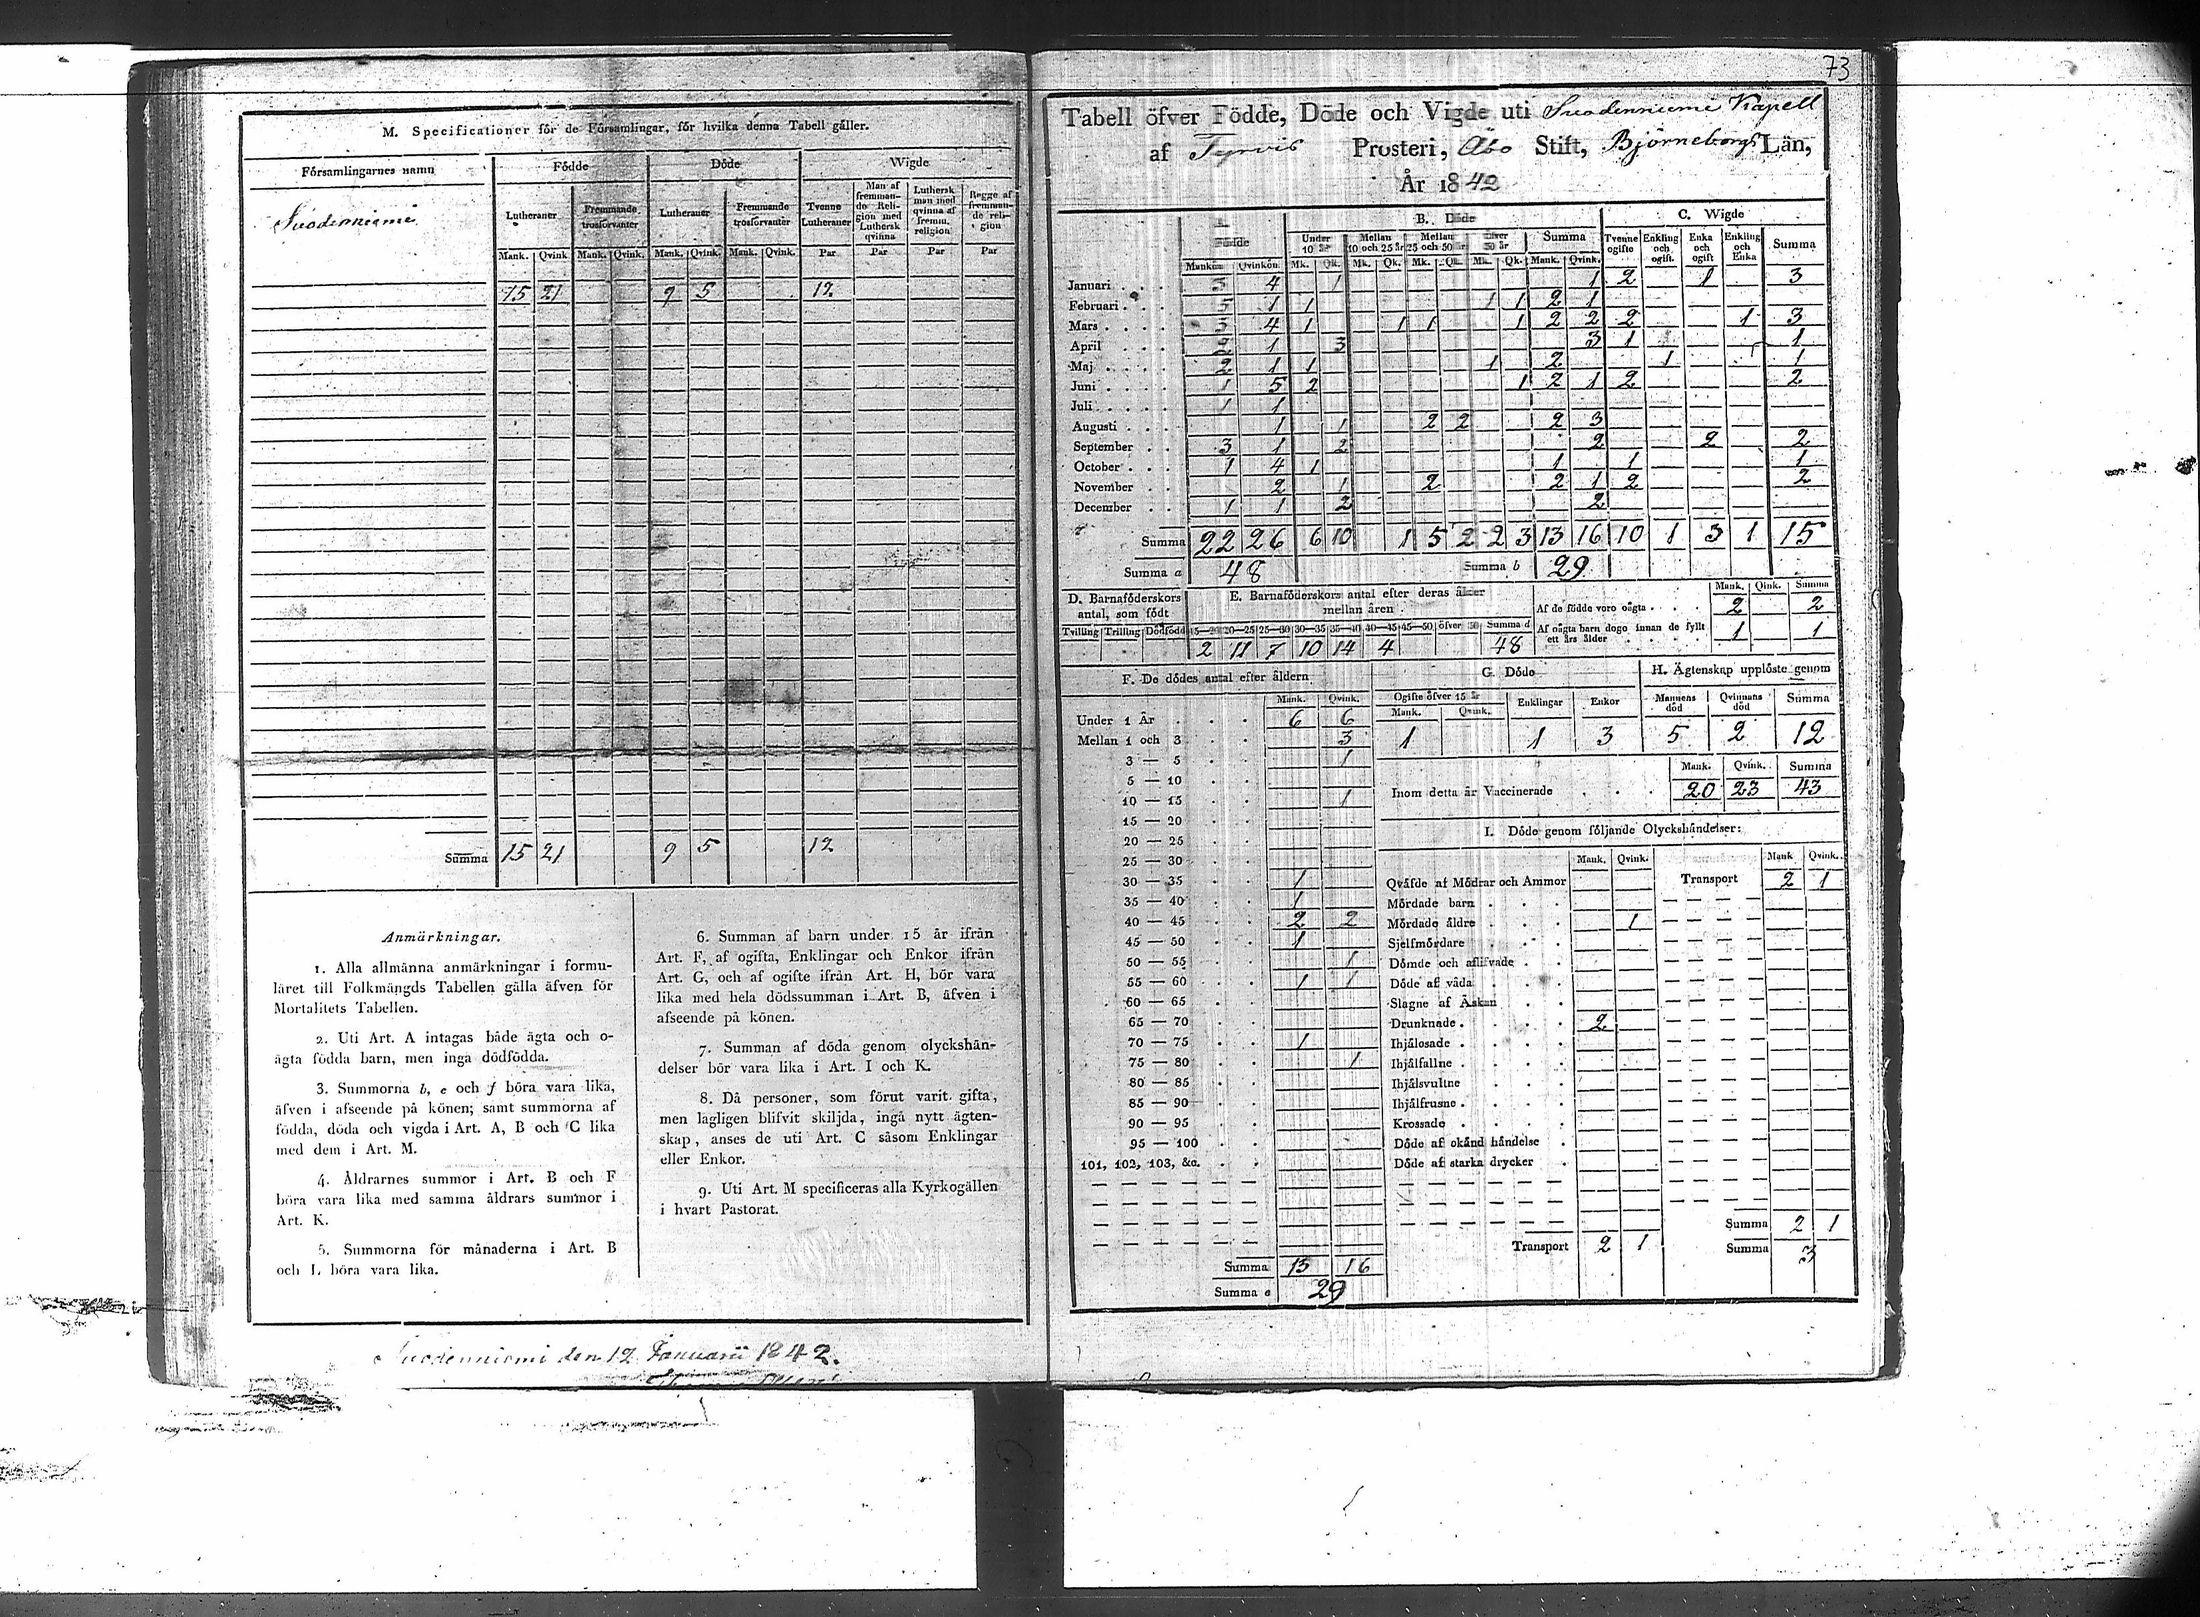 M. Specificationer för de Församlingar, för hvilka denna Tabell gäller.
Församlingarnes namn Födde Döde Wigde
Lutheraner Fremmande trosförvanter Lutheraner Fremmande trosförvanter Tvenne Lutheraner Man af fremmande Religion med Luthersk qvinna Luthersk man med qvinna af fremm. religion Begge af fremmande religion
Mank. Qvink. Mank. Qvink. Mank. Qvink. Mank. Qvink. Par Par Par Par
Suodenniemi
15 21 9 5 12
Summa 15 21 9 5 12
Anmärkningar.
1. Alla allmänna anmärkningar i formu-
läret till Folkmängds Tabellen gälla äfven för
Mortalitets Tabellen.
2. Uti Art. A intagas både ägta och o-
ägta födda barn, men inga dödfödda.
3. Summorna b, e och f böra vara lika,
äfven i afseende på könen; samt summorna af
födda, döda och vigda i Art. A, B och C lika
med dem i Art. M.
4. Åldrarnes summor i Art. B och F
böra vara lika med samma åldrars summor i
Art. K.
5. Summorna för månaderna i Art. B
och L böra vara lika.
6. Summan af barn under 15 år ifrån
Art. F, af ogifta, Enklingar och Enkor ifrån
Art. G, och af ogifte ifrån Art. H, bör vara
lika med hela dödssumman i Art. B, äfven i
afseende på könen.
7. Summan af döda genom olyckshän-
delser bör vara lika i Art. I och K.
8. Då personer, som förut varit gifta,
men lagligen blifvit skiljda, ingå nytt ägten-
skap, anses de uti Art. C såsom Enklingar
eller Enkor.
9. Uti Art. M specificeras alla Kyrkogällen
i hvart Pastorat.
Suodenniemi den 12 Januarii 1842.
73
Tabell öfver Födde, Döde och Vigde uti Suodenniemi Kapell
af Tyrvis Prosteri, Åbo Stift, Björneborgs Län,
År 1842
Födde B. Döde C. Wigde
Under 10 år Mellan 10 och 25 år Mellan 25 och 50 år öfver 50 år Summa Tvenne ogifte Enkling och ogift. Enka och ogift Enkling och Enka Summa
Mankön Qvinkön. Mk. Qk. Mk. Qk. Mk. Qk. Mk. Qk. Mank. Qvink.
Januari 3 4 1 1 2 1 3
Februari 5 1 1 1 1 2 1
Mars 3 4 1 1 1 1 2 2 2 1 3
April 2 1 3 3 1 1
Maj 2 1 1 1 2 1 1
Juni 1 5 2 1 2 1 2 2
Juli 1 1
Augusti 1 1 2 2 2 3
September 3 1 2 2 2 2
October 1 4 1 1 1 1
November 2 1 2 2 1 2 2
December 1 1 2 2
Summa 22 26 6 10 1 5 2 2 3 13 16 10 1 3 1 15
Summa a 48 Summa b 29
D. Barnaföderskors antal, som födt
Tvilling Trilling Dödfödd
E. Barnaföderskors antal efter deras ålder mellan åren
15—20 20—25 25—30 30—35 35—40 40—45 45—50 öfver 50 Summa d
2 11 7 10 14 4 48
Mank. Qink. Summa
Af de födde voro oägta 2 2
Af oägta barn dogo innan de fyllt ett års ålder 1 1
F. De dödes antal efter åldern
Mank. Qvink.
Under 1 År 6 6
Mellan 1 och 3 3
3 — 5 1
5 — 10
10 — 15 1
15 — 20
20 — 25
25 — 30
30 — 35 1
35 — 40 1
40 — 45 2 2
45 — 50 1
50 — 55 1
55 — 60 1 1
60 — 65
65 — 70
70 — 75 1
75 — 80 1
80 — 85
85 — 90
90 — 95
95 — 100
101, 102, 103, &c.
Summa 13 16
Summa e 29
G. Döde
Ogifte öfver 15 år Enklingar Enkor
Mank. Qvink.
1 1 3
H. Ägtenskap upplöste genom
Mannens död Qvinnans död Summa
5 2 12
Mank. Qvink. Summa
Inom detta år Vaccinerade 20 23 43
I. Döde genom följande Olyckshändelser:
Mank. Qvink. Mank Qvink.
Qväfde af Mödrar och Ammor Transport 2 1
Mördade barn
Mördade äldre 1
Sjelfmördare
Dömde och aflifvade
Döde af våda
Slagne af Åskan
Drunknade 2
Ihjälosade
Ihjälfallne
Ihjälsvultne
Ihjälfrusne
Krossade
Döde af okänd händelse
Döde af starka drycker
Summa 2 1
Transport 2 1 Summa 3